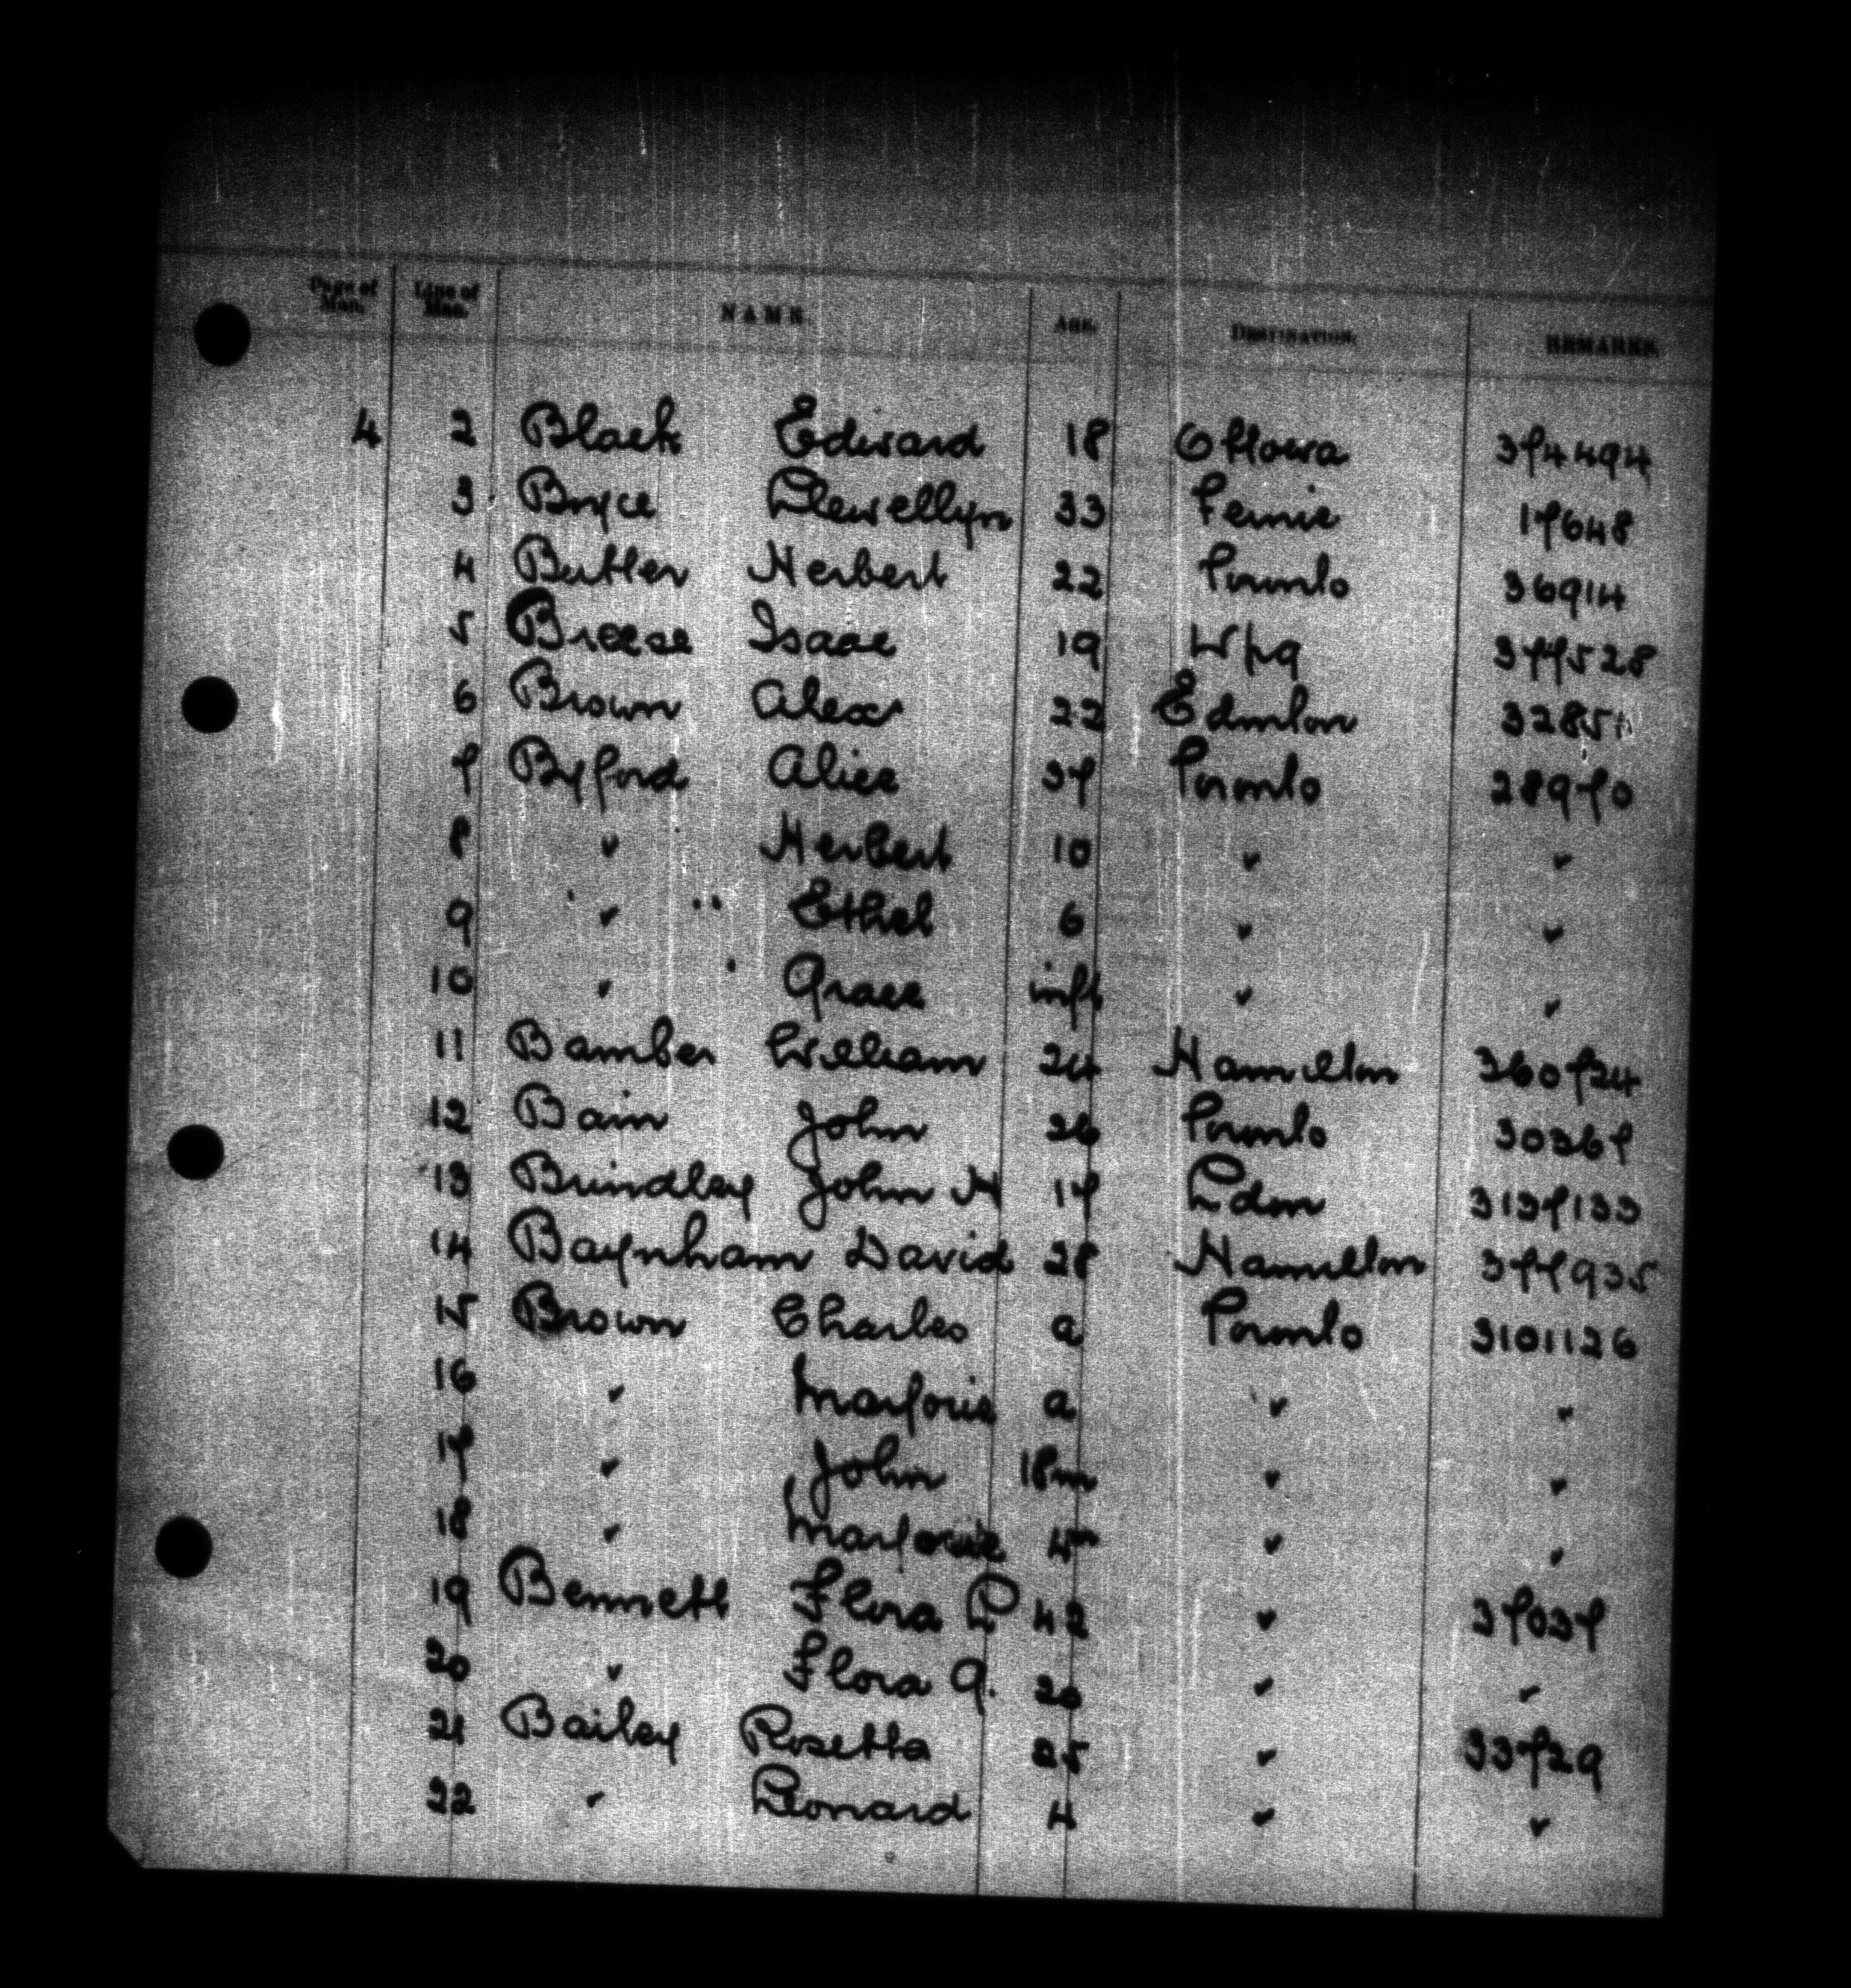 Page of Man. Line of Man. NAME. Age. DESTINATION. REMARKS.
4 2 Black Edward 18 Ottowa 374494
3 Bryce Llewellyn 33 Fernie 17648
4 Butler Herbert 22 Toronto 36914
5 Breese Isaac 19 Wpg 377528
6 Brown Alex 22 Edmton 32851
7 Byford Alice 37 Toronto 28970
8 " Herbert 10 " "
9 " Ethel 6 " "
10 " Grace inft " "
11 Bamber William 24 Hamilton 360724
12 Bain John 26 Toronto 30367
13 Brindley John H 17 Ldon 3137133
14 Baynham David 28 Hamilton 377935
15 Brown Charles a Toronto 3101126
16 " Marjorie a " "
17 " John 18m " "
18 " Marjorie 4m " "
19 Bennett Flora L 42 " 37037
20 " Flora G. 20 " "
21 Bailey Rosetta 25 " 33729
22 " Leonard 4 " "